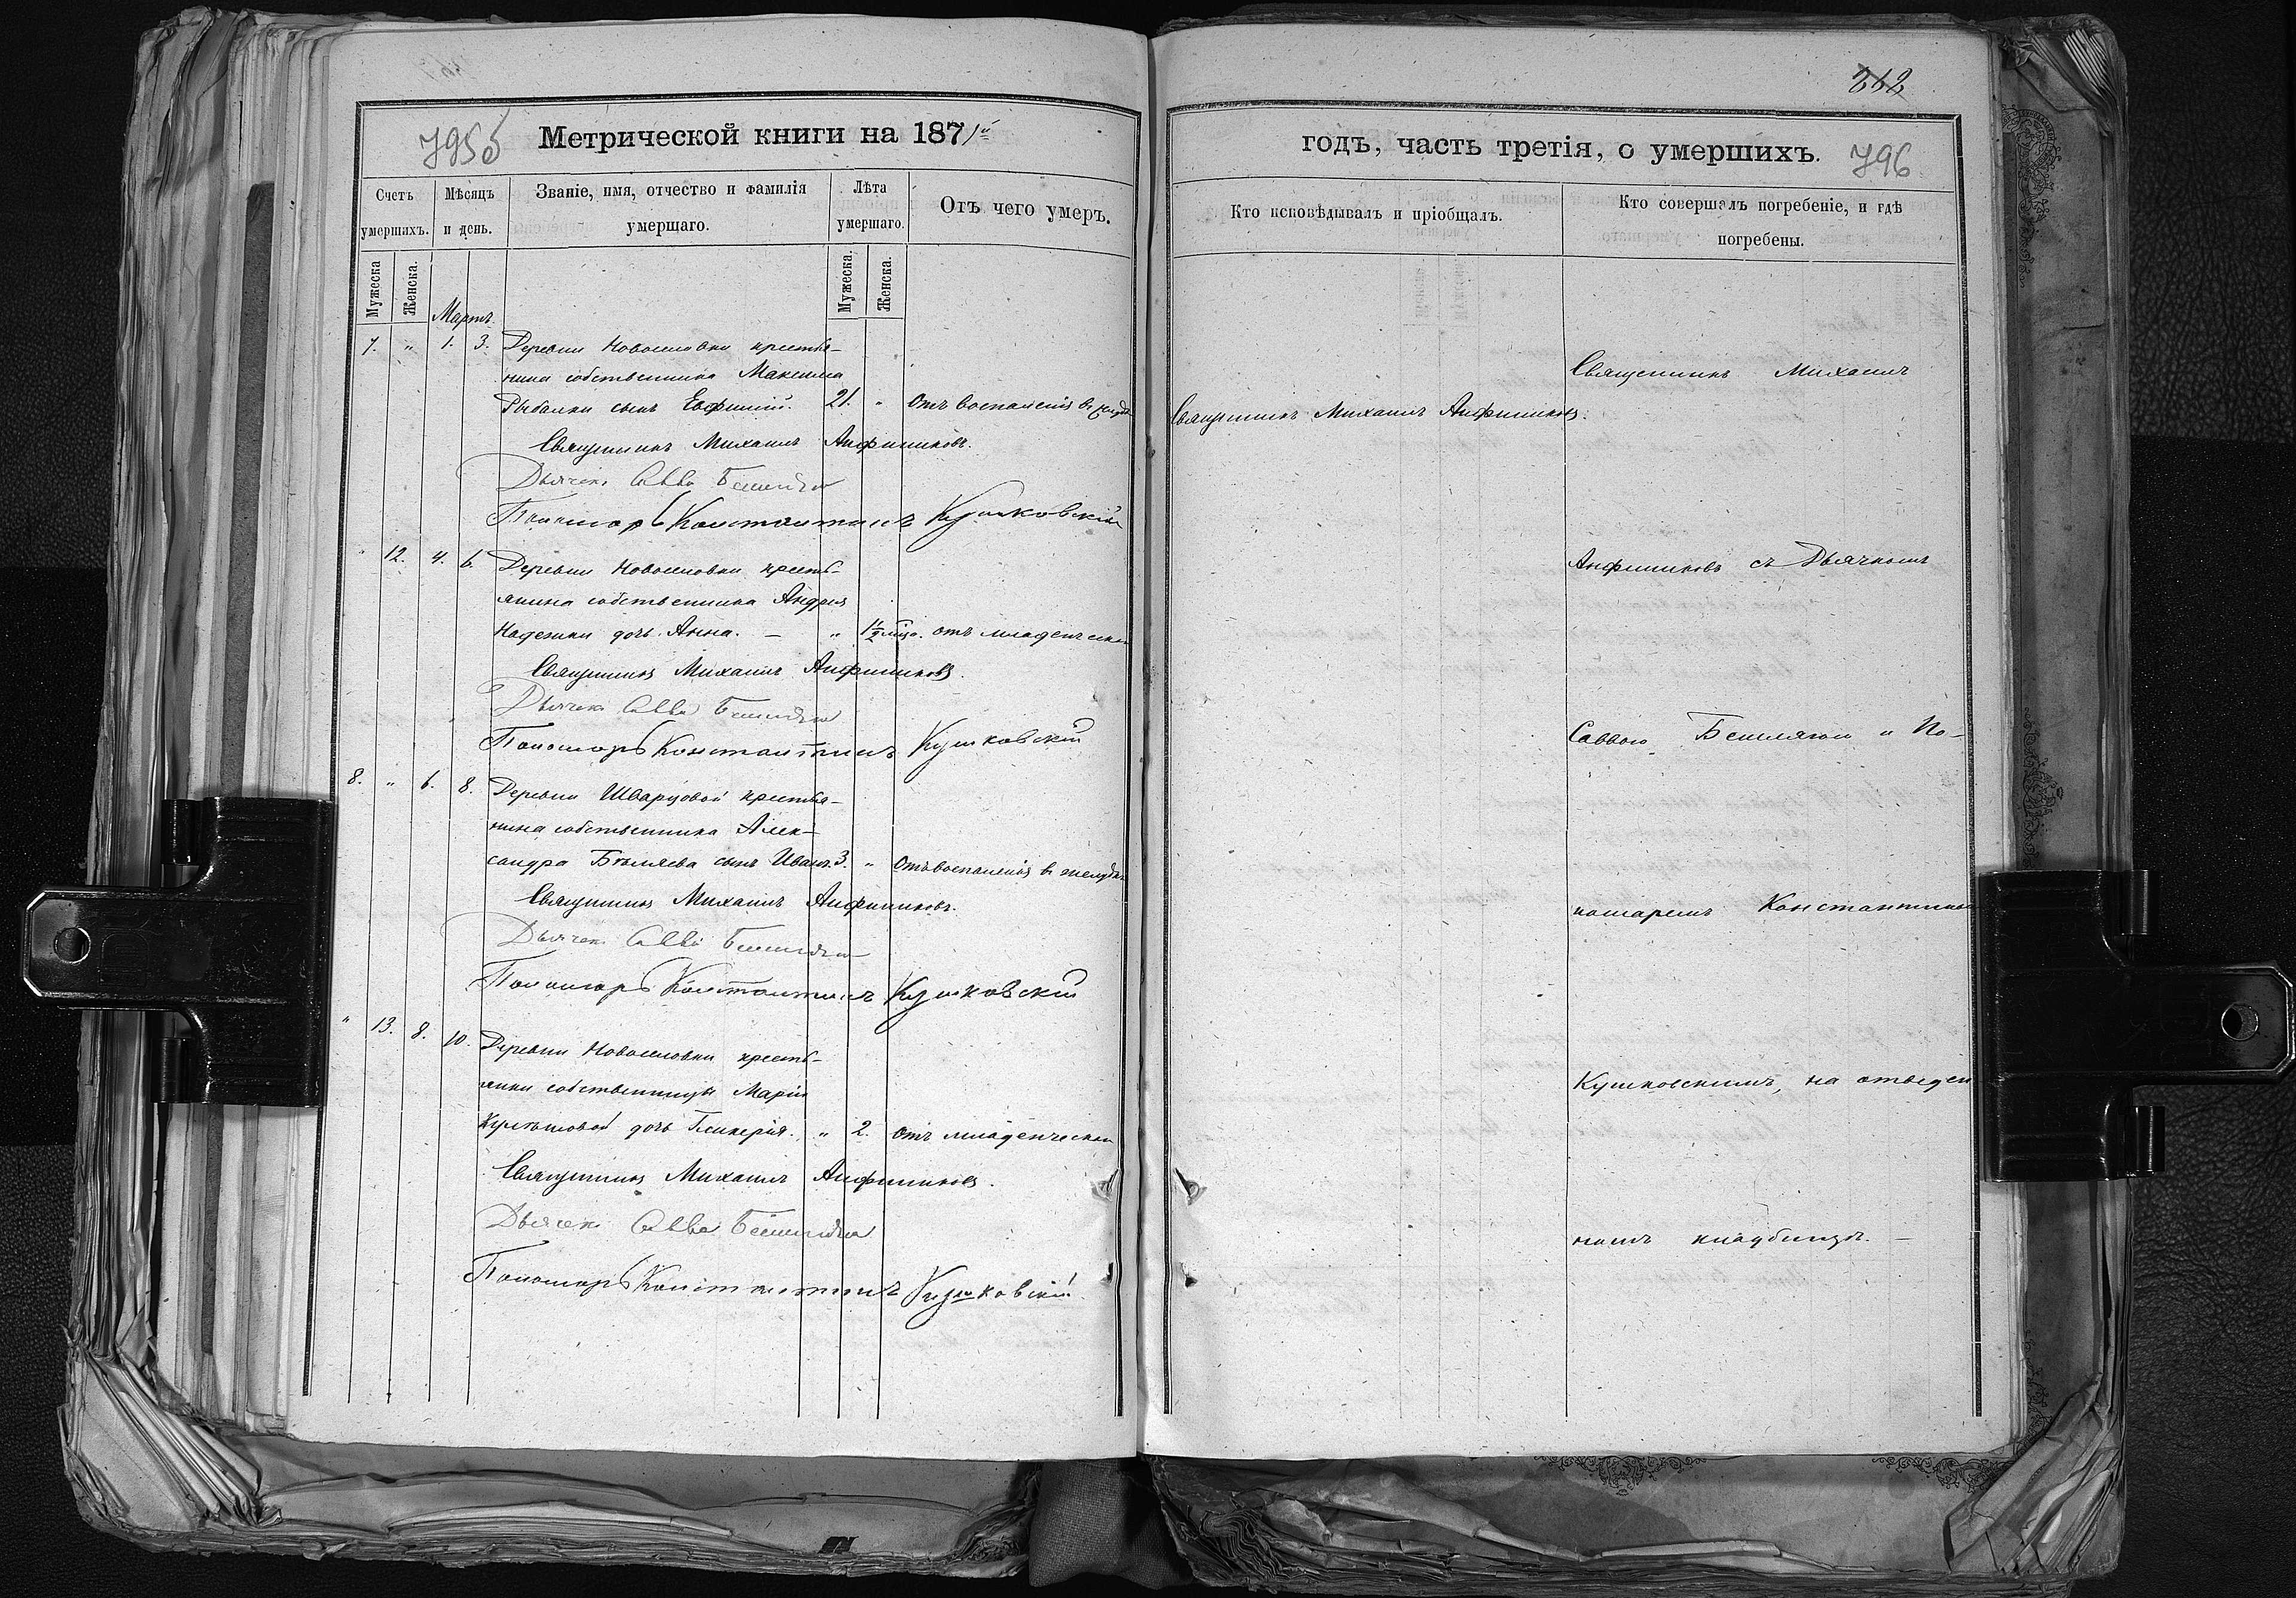 795б Метрической книги на 1871й
Счетъ умершихъ.
Мѣсяцъ и день.
Званіе, имя, отчество и фамилія умершаго.
Лѣта умершаго.
Отъ чего умеръ.
Мужеска
Женска.
Мужеска.
Женска.
Мартъ.
7. " 1. 3. Деревни Новоселовки крестья-
нина собственника Максима
Рыбалки сынъ Евфимій. 21. " Отъ воспаленія въ
Священникъ Михаилъ Анфиногеновъ.
Дьячекъ Савва
Пономарь Константинъ Кушковскій
" 12. 4. 6. Деревни Новоселовки кресть-
янина собственника Андрея
дочь Анна. — " 1½ мѣся. отъ младенческой
Священникъ Михаилъ
Дьячекъ Савва
Пономарь Константинъ Кушковскій
8. " 6. 8. Деревни Шварцовой крестья-
нина собственника Алек-
сандра Бѣляева сынъ Иванъ. 3. " Отъ воспаленія въ желудкѣ
Священникъ Михаилъ
Дьячекъ Савва
Пономарь Константинъ Кушковскій
" 13. 8. 10. Деревни Новоселовки кресть-
янки собственницы Маріи
дочь Гликерія. " 2. Отъ младенческой
Священникъ Михаилъ
Дьячекъ Савва
Пономарь Константинъ Кушковскій
годъ, часть третія, о умершихъ. 796
Кто исповѣдывалъ и пріобщалъ.
Кто совершалъ погребеніе, и гдѣ
погребены.
Священникъ Михаилъ
Священникъ Михаилъ
съ Дьячкомъ
Саввою и По-
номаремъ Константиномъ
Кушковскимъ, на отведен
номъ кладбищѣ. —